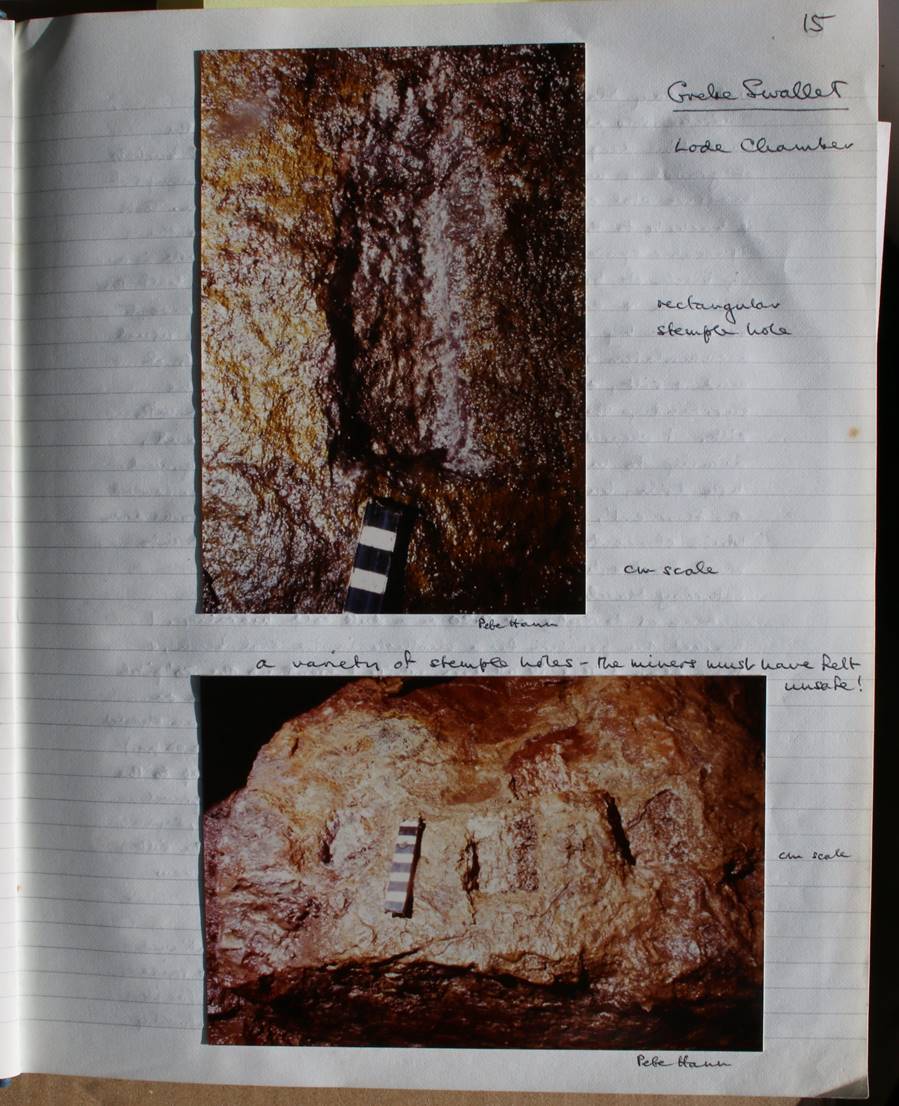 15
Grebe Swallet
Lode Chamber
rectangular
stemple hole
cm scale
Pete Hann
a variety of stemple holes - the miners must have felt
unsafe!
cm scale
Pete Hann